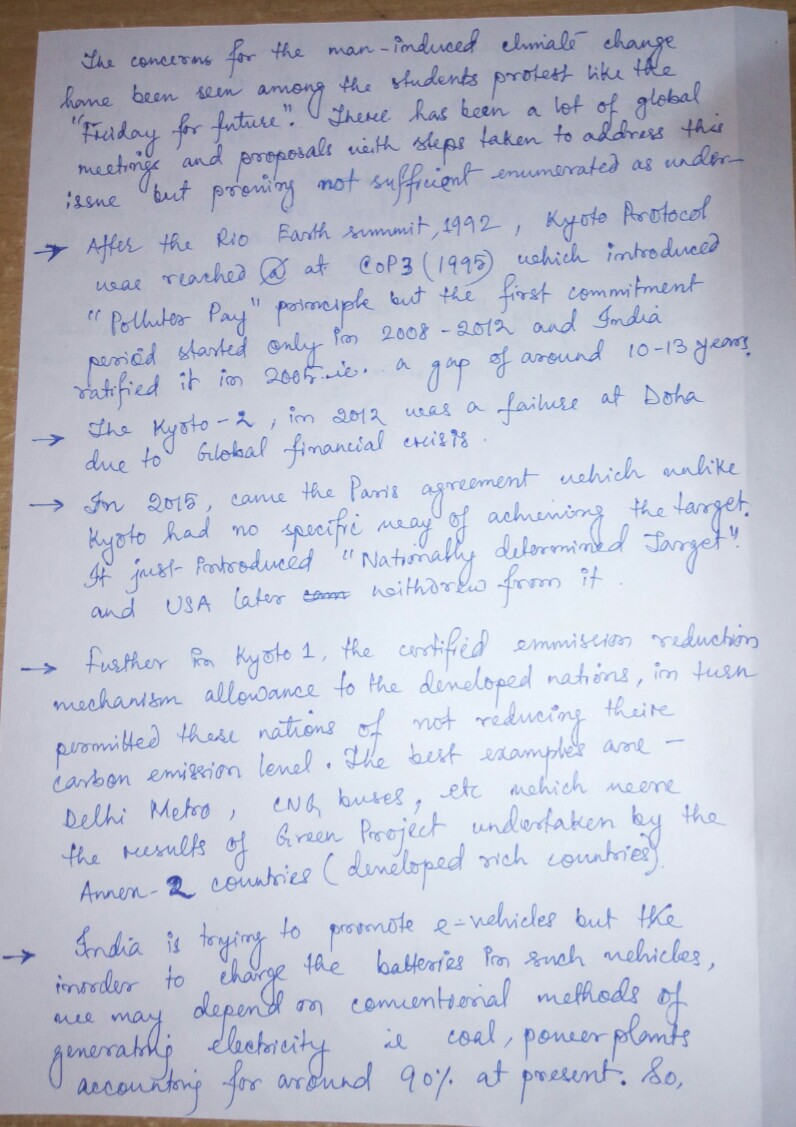 The concerns for the man-induced climate change
have been seen among the students protest like the
"Friday for future". There has been a lot of global
meetings and proposals with steps taken to address this
issue but proving not sufficient enumerated as under-
→ After the Rio Earth summit, 1992, Kyoto Protocol
was reached @ at COP3 (1995) which introduced
"Polluter Pay" principle but the first commitment
period started only in 2008-2012 and India
ratified it in 2005 i.e. a gap of around 10-13 years.
→ The Kyoto-2, in 2012 was a failure at Doha
due to Global financial crisis.
→ In 2015, came the Paris agreement which unlike
Kyoto had no specific way of achieving the target.
It just introduced "Nationally determined Target".
and USA later came withdrew from it.
→ Further in Kyoto 1, the certified emmission reduction
mechanism allowance to the developed nations, in turn
permitted these nations of not reducing theire
carbon emission level. The best examples are -
Delhi Metro, CNG buses, etc which were
the results of Green Project undertaken by the
Annex-2 countries (developed rich countries)
→ India is trying to promote e-vehicles but the
inorder to charge the batteries in such vehicles,
we may depend on conventional methods of
generating electricity ie coal, power plants
accounting for around 90% at present. So,